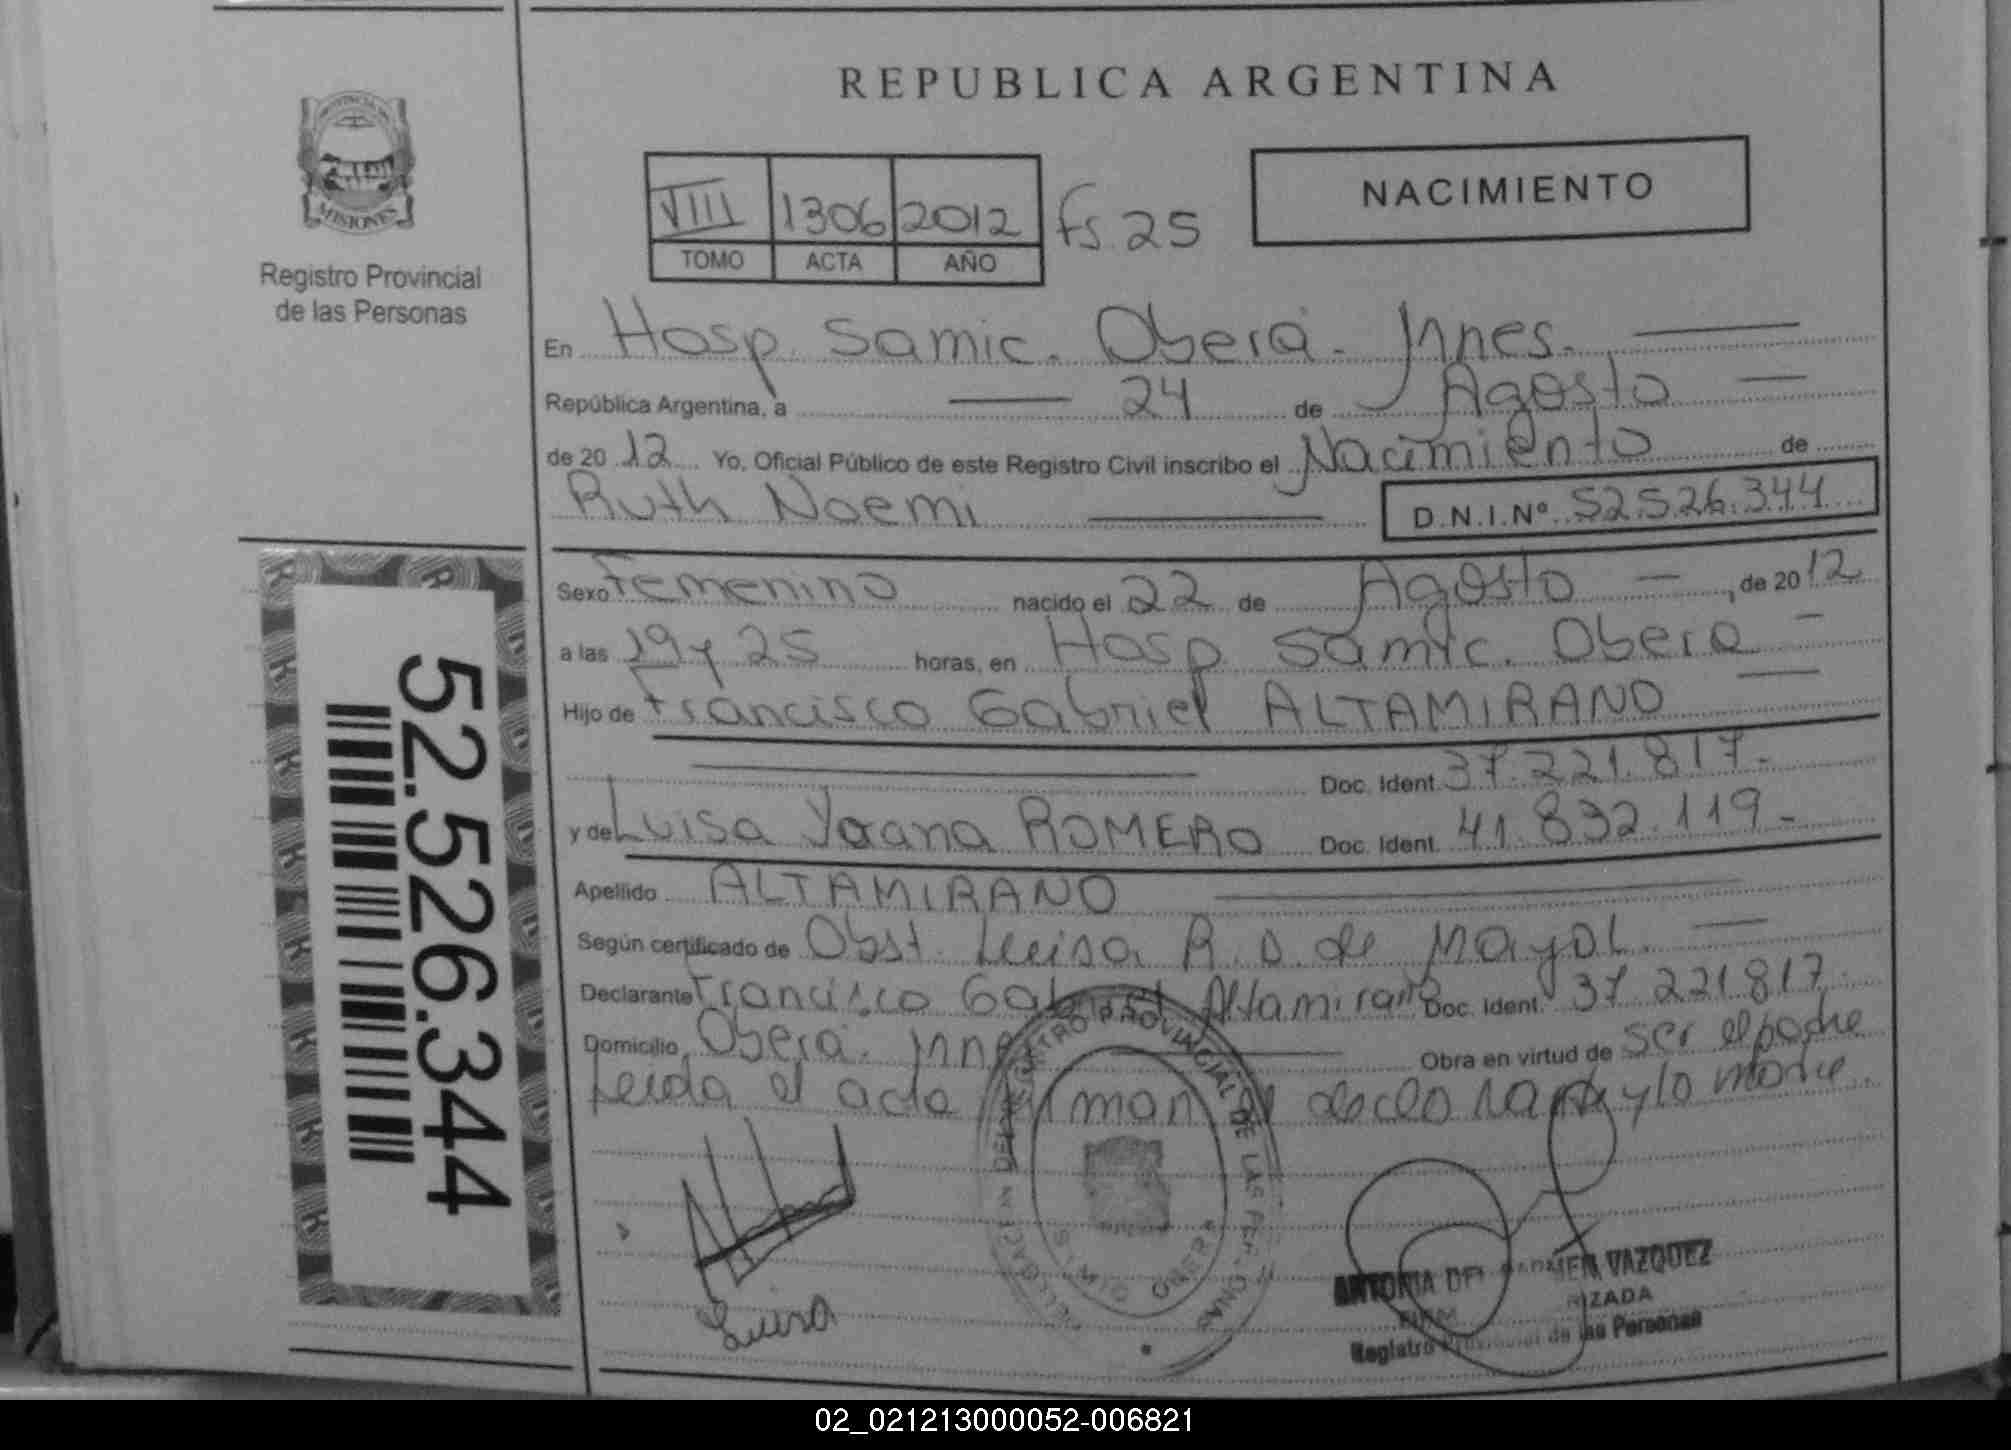 REPUBLICA ARGENTINA
PROVINCIA DE
MISIONES
Registro Provincial
de las Personas
VIII 1306 2012 fs. 25
TOMO ACTA AÑO
NACIMIENTO
En Hosp. Samic. Oberá. Mnes.
República Argentina, a 24 de Agosto
de 2012 Yo, Oficial Público de este Registro Civil inscribo el Nacimiento de
Ruth Noemi D.N.I.Nº 52.526.344
Sexo Femenino nacido el 22 de Agosto, de 2012
a las 19 y 25 horas, en Hosp Samic. Obera
Hijo de Francisco Gabriel ALTAMIRANO
Doc. Ident. 37.221.817.-
y de Luisa Yoana ROMERO Doc. Ident. 41.832.119.-
Apellido ALTAMIRANO
Según certificado de Obst. Luisa R. D. de Mayol.
Declarante Francisco Gabriel Altamirano Doc. Ident. 37 221 817.
Domicilio Oberá. Mnes Obra en virtud de ser el padre
Leida el acta firman el declarante y la madre.
52.526.344
DELEGACION DEL REGISTRO PROVINCIAL DE LAS PERSONAS
OBERA
Luisa
ANTONIA DEL CARMEN VAZQUEZ
Registro Provincial de las Personas
02_021213000052-006821